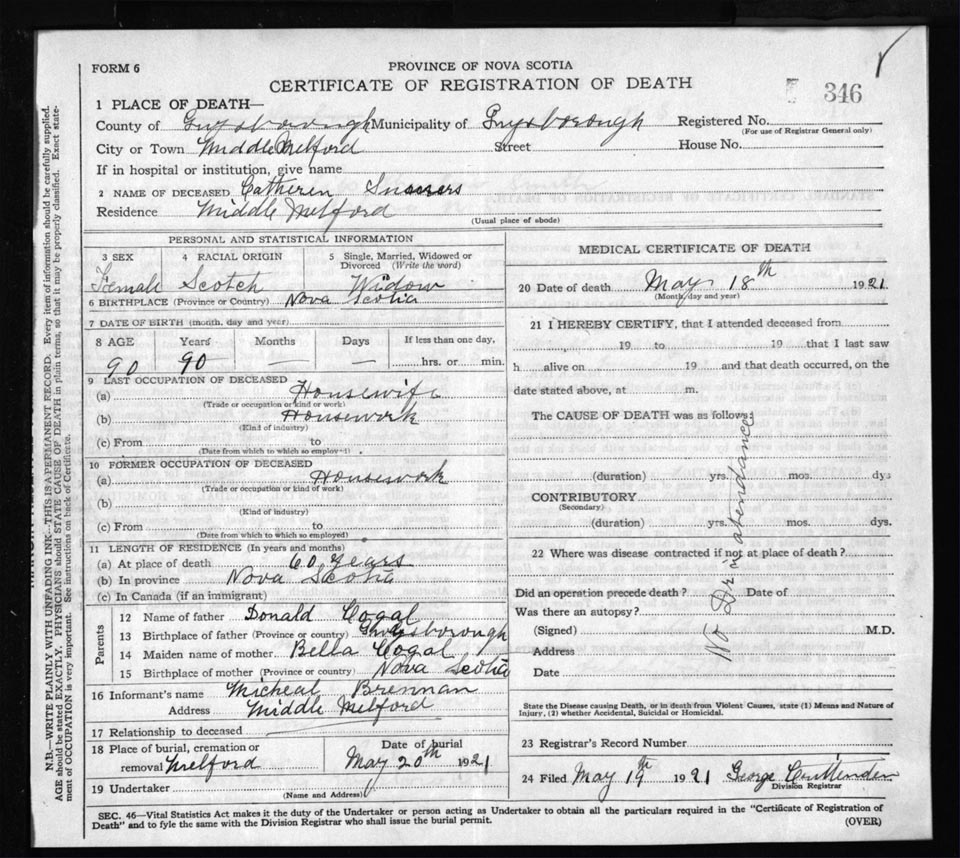 FORM 6
PROVINCE OF NOVA SCOTIA
CERTIFICATE OF REGISTRATION OF DEATH
346
1 PLACE OF DEATH—
County of Guysborough Municipality of Guysborough Registered No.
(For use of Registrar General only)
City or Town Middle Melford Street House No.
If in hospital or institution, give name
2 NAME OF DECEASED Catheren
Residence Middle Melford
(Usual place of abode)
PERSONAL AND STATISTICAL INFORMATION
3 SEX 4 RACIAL ORIGIN 5 Single, Married, Widowed or
Divorced (Write the word)
Female Scotch Widow
6 BIRTHPLACE (Province or Country) Nova Scotia
7 DATE OF BIRTH (month, day and year)
8 AGE Years Months Days If less than one day,
90 90 — — hrs. or min.
9 LAST OCCUPATION OF DECEASED
(a) Housewife
(Trade or occupation or kind or work)
(b) Housework
(Kind of industry)
(c) From to
(Date from which to which so employed)
10 FORMER OCCUPATION OF DECEASED
(a) Housework
(Trade or occupation or kind of work)
(b)
(Kind of industry)
(c) From to
(Date from which to which so employed)
11 LENGTH OF RESIDENCE (In years and months)
(a) At place of death 60 years
(b) In province Nova Scotia
(c) In Canada (if an immigrant)
Parents
12 Name of father Donald Cogal
13 Birthplace of father (Province or country) Guysborough
14 Maiden name of mother Bella Cogal
15 Birthplace of mother (Province or country) Nova Scotia
16 Informant's name Micheal Brennan
Address Middle Melford
17 Relationship to deceased
18 Place of burial, cremation or Date of burial
removal Melford May 20th 1921
19 Undertaker
(Name and Address)
MEDICAL CERTIFICATE OF DEATH
20 Date of death May 18th 1921
(Month, day and year)
21 I HEREBY CERTIFY, that I attended deceased from
19 to 19 that I last saw
h alive on 19 and that death occurred, on the
date stated above, at m.
The CAUSE OF DEATH was as follows:
No Dr in atendance
(duration) yrs. mos. dys
CONTRIBUTORY
(Secondary)
(duration) yrs. mos. dys.
22 Where was disease contracted if not at place of death?
Did an operation precede death? Date of
Was there an autopsy?
(Signed) M.D.
Address
Date
State the Disease causing Death, or in death from Violent Causes, state (1) Means and Nature of
Injury, (2) whether Accidental, Suicidal or Homicidal.
23 Registrar's Record Number
24 Filed May 19th 1921 George
Division Registrar
SEC. 46—Vital Statistics Act makes it the duty of the Undertaker or person acting as Undertaker to obtain all the particulars required in the "Certificate of Registration of
Death" and to fyle the same with the Division Registrar who shall issue the burial permit.
(OVER)
N.B.—WRITE PLAINLY WITH UNFADING INK—THIS IS A PERMANENT RECORD. Every item of information should be carefully supplied.
AGE should be stated EXACTLY. PHYSICIANS should STATE CAUSE OF DEATH in plain terms, so that it may be properly classified. Exact state-
ment of OCCUPATION is very important. See instructions on back of Certificate.